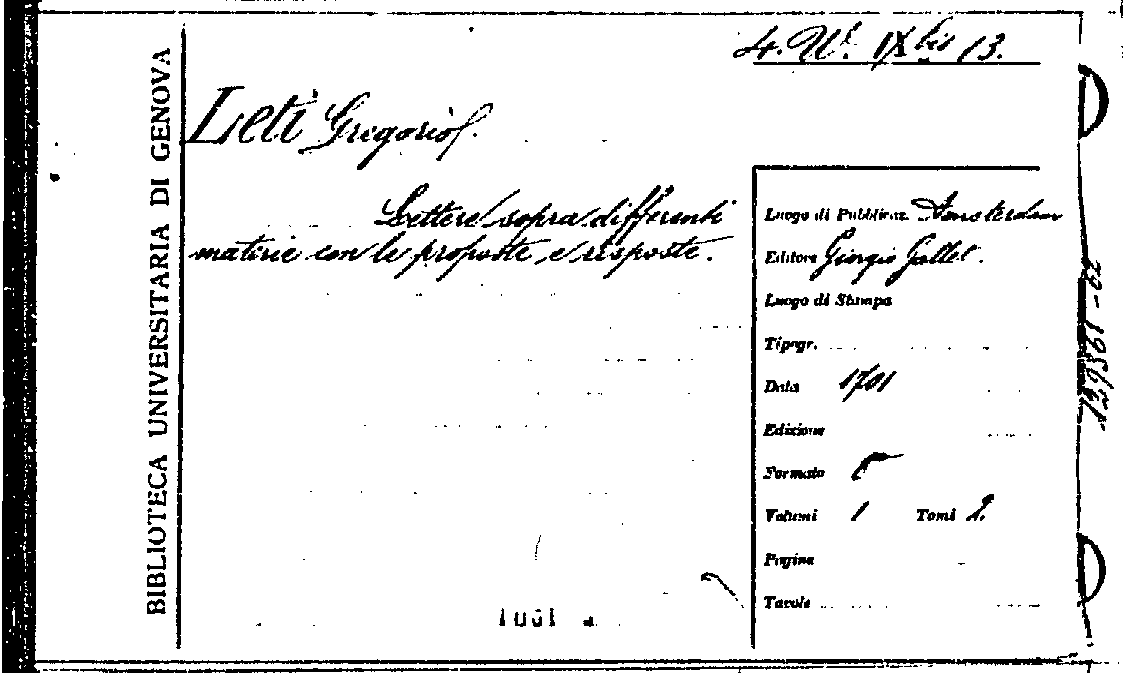 4. W. IX bis 13.
BIBLIOTECA UNIVERSITARIA DI GENOVA
Leti Gregorio.
Lettere sopra differenti
materie con le proposte e risposte.
Luogo di Pubblicaz. Amsterdam
Editore Giorgio Gallet.
Luogo di Stampa
Tipogr.
Data 1701
Edizione
Formato 8
Volumi 1 Tomi 2.
Pagine
Tavole
139361-62